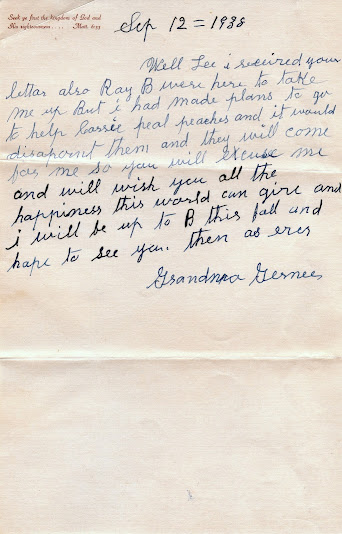 Seek ye first the kingdom of God and
His righteousness . . . . Matt. 6:33
Sep 12 = 1938
Well Lee i recived your
letter also Ray B were here to take
me up But i had made plans to go
to help Cassie peal peaches and it would
disapoint them and they will come
for me so you will Excuse me
and will wish you all the
happiness this world can give and
i will be up to B this fall and
hape to see you. then as ever
Grandma